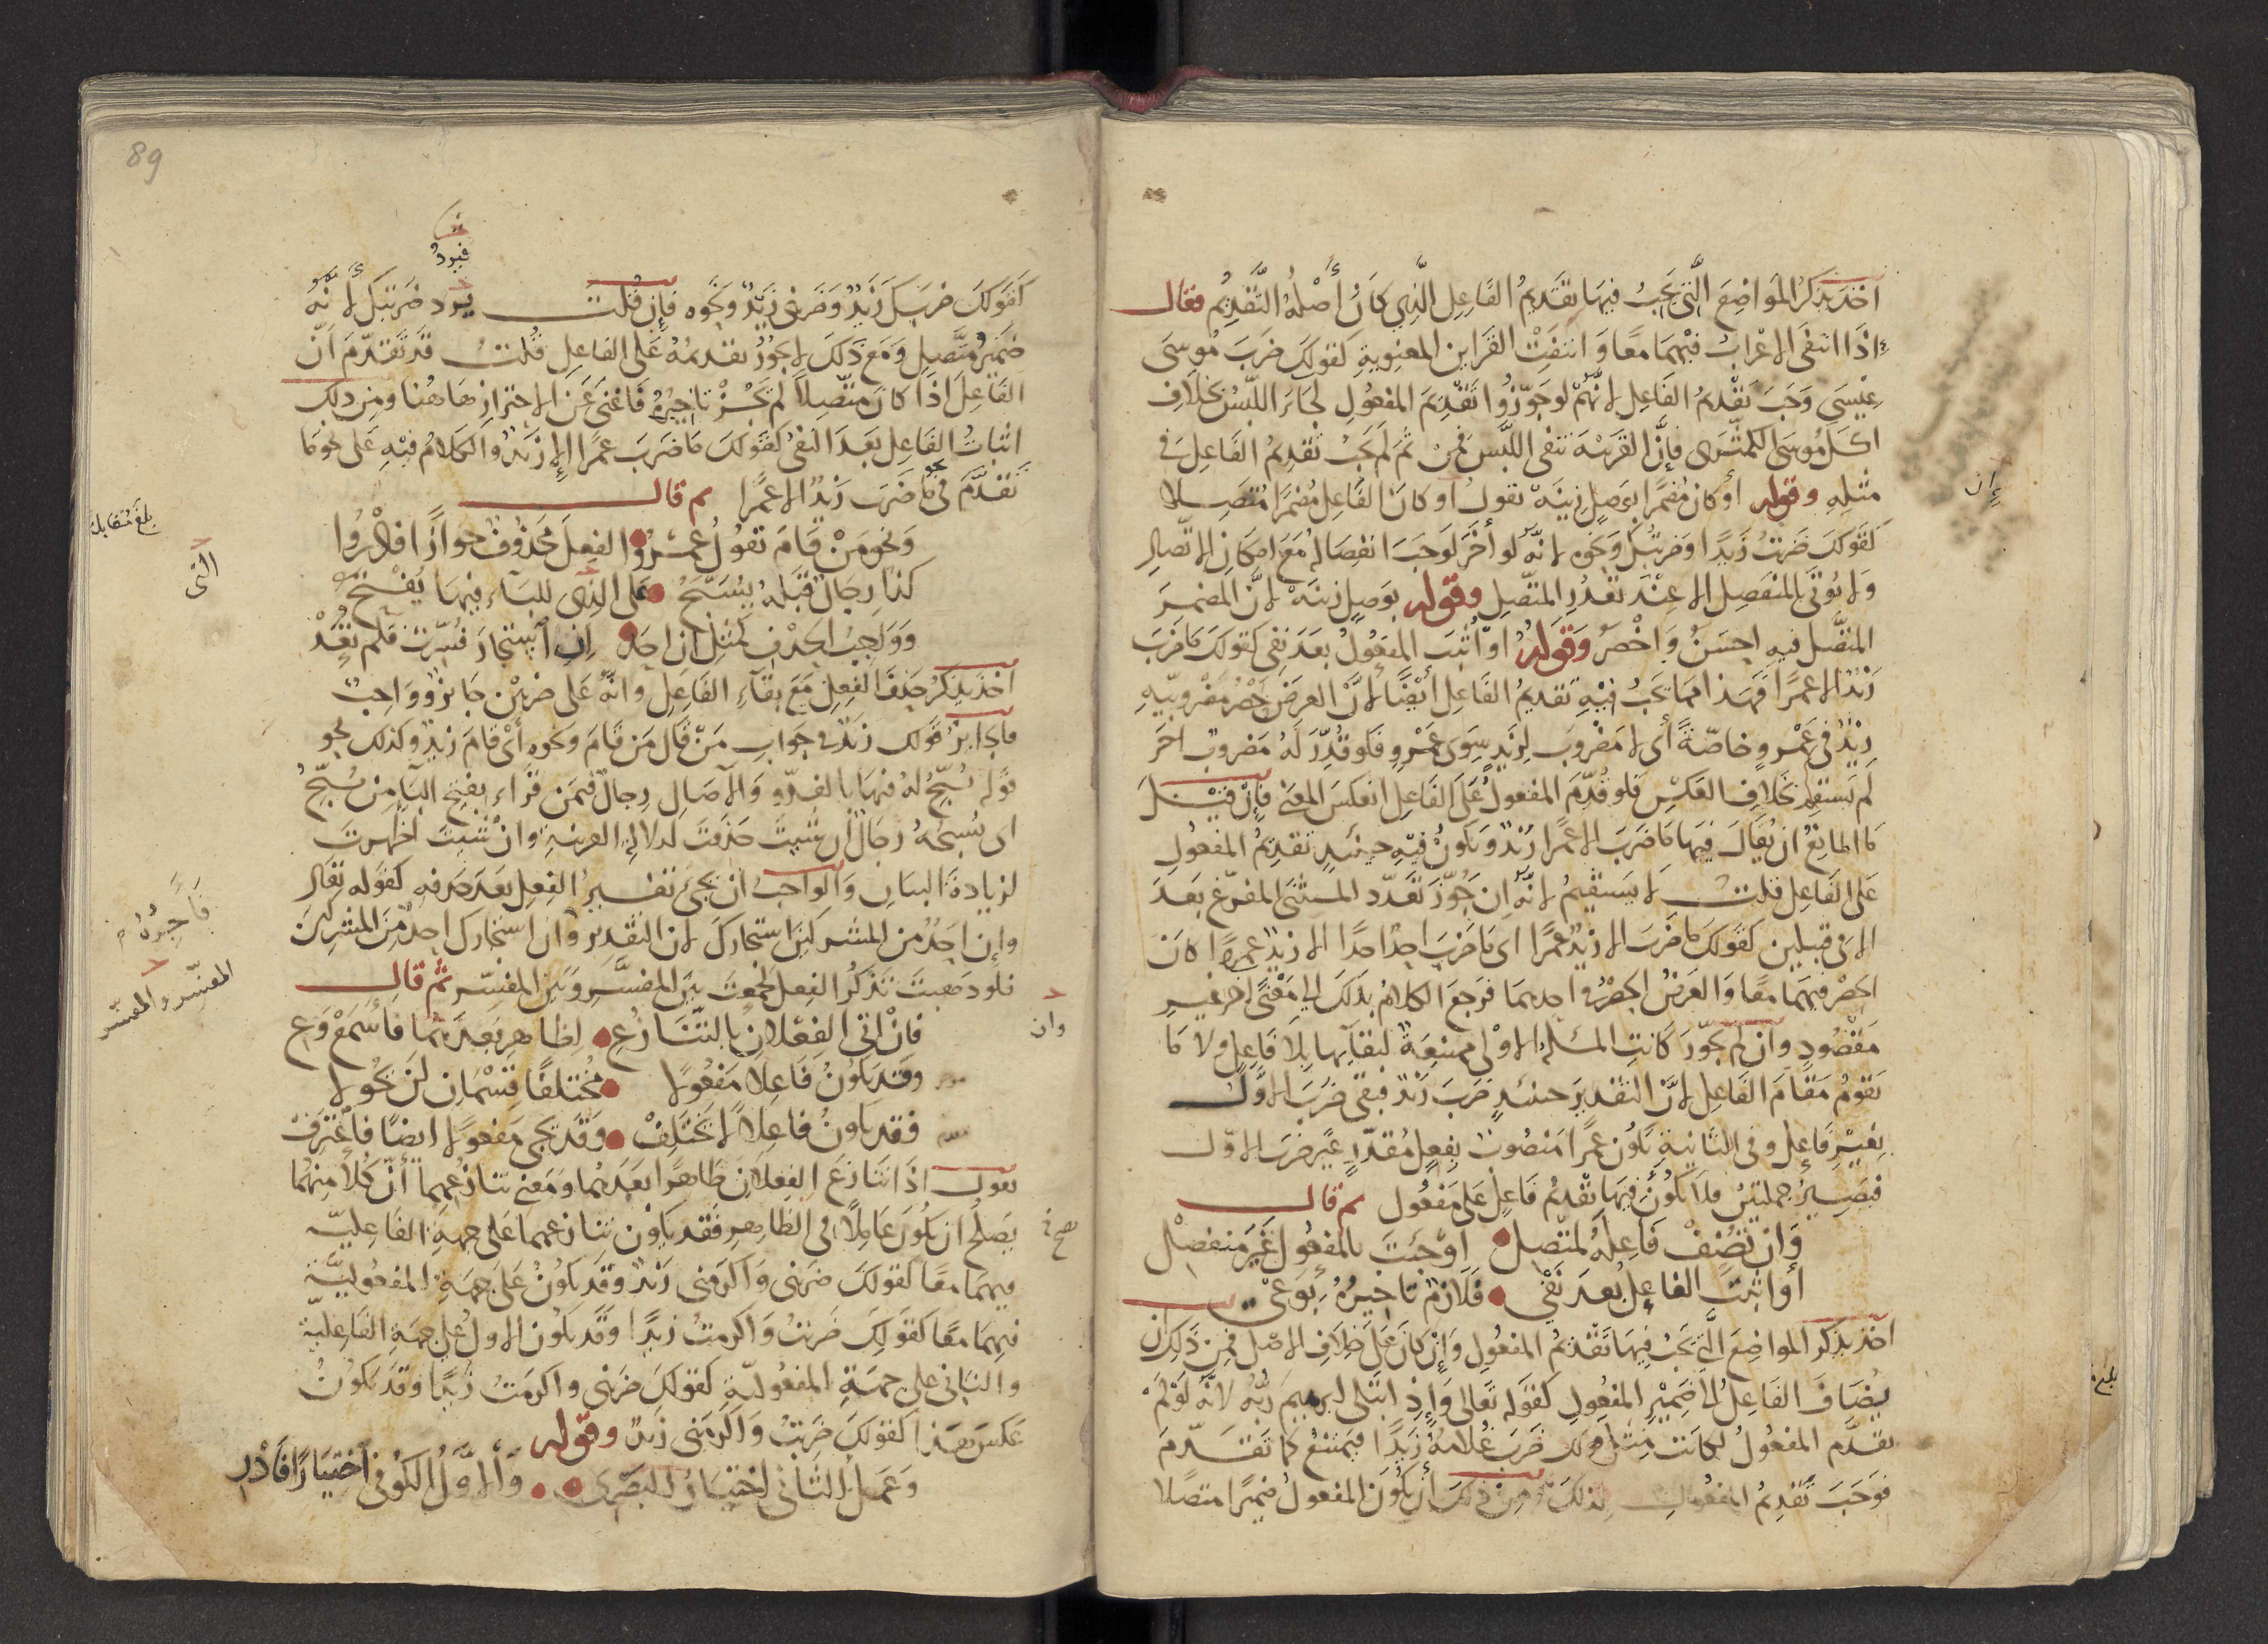 أخذ يذكر المواضع التي يجب فيها تقديم الفاعل الذي كان أصله التقديم فقال
إذا انتفى الإعراب فيهما معًا وانتفت القراين المعنوية كقولك ضرب موسى
عيسى وجب تقديم الفاعل لأنهم لو جوّزوا تقديم المفعول لجاء اللبس بخلاف
اكل موسى الكمثرى فإن القرينة تنفي اللبس فمن ثم لم يجب تقديم الفاعل في
إن
مثله وقوله أو كان مضمرا بوصل زينه تقول أو كان الفاعل مضمرا متصلا
كقولك ضربت زيدًا وضربتك ونحوه لأنه لو أخر لوجب انفصاله مع امكان الاتصال
ولا يؤتى بالمنفصل إلا عند تعذر المتصل وقوله بوصل زينه لأن المضمر
المتصل فيه احسن واخصر وقوله او أثبت المفعول بعد نفي كقولك ما ضرب
زيد الا عمرًا فهذا مما يجب فيه تقديم الفاعل أيضًا لأن الغرض حصر مضروبيه
زيد في عمرو خاصّة أي لا مضروب لزيد سوى عمرو فلو قدّر له مضروب اخر
لم يستقم بخلاف العكس فلو قدّم المفعول على الفاعل انعكس المعنى فإن قيل
ما المانع ان يقال فيها ما ضرب الا عمرا زيد ويكون فيه حينئذ تقديم المفعول
على الفاعل قلت لا يستقيم لأنه ان جوّز تعدّد المستثنى المفرغ بعد
الا في قبيلين كقولك ما ضرب الا زيد عمرًا اى ما ضرب احد احدًا الا زيد عمرًا كان
الحصر فيهما معا والغرض الحصر في احدهما فرجع الكلام بذلك الى معنى اخر غير
مقصود وان لم يجوّز كانت المسئلة الأولى ممتنعة لبقآيها بلا فاعل ولا ما
يقوم مقام الفاعل لأن التقدير حينئذ ضرب زيد فبقي ضرب الأول
بغير فاعل وفي الثانية يكون عمرا منصوب بفعل مقدّر غير ضرب الأول
فيصير جملتين فلا يكون فيها تقديم فاعل على مفعول ثم قال
وان تضف فاعله لمتصل أو جئت بالمفعول غير منفصل
أو اثبت الفاعل بعد نفي فلازم تأخيره بوعي
أخذ يذكر المواضع التي يجب فيها تقديم المفعول وإن كان على خلاف الاصل فمن ذلك ان
يضاف الفاعل إلى ضمير المفعول كقوله تعالى وإذ ابتلى ابرهيم ربه لانه لو لم
يقدّم المفعول لكانت مثل قولك ضرب غلامه زيدًا فيمتنع كما تقدّم
فوجب تقديم المفعول لذلك ومن ذلك أن يكون المفعول ضميرا متصلا
89
فيرد
كقولك ضربك زيد وضربني زيد ونحوه فإن قلت يرد ضربتك لأنه
ضمير متصل ومع ذلك لا يجوز تقديمه على الفاعل قلت قد تقدّم أنّ
الفاعل اذا كان متصلا لم يجز تاخيره فاغنى عن الاحتراز هاهنا ومن ذلك
اثبات الفاعل بعد النفي كقولك ما ضرب عمرا إلا زيد والكلام فيه على نحو ما
تقدّم في نحو ما ضرب زيد الا عمرًا ثم قال
بلغ مقابلة
ونحو من قام تقول عمرو والفعل محذوف جوازا فادروا
التي
كذا رجال قبله يسبح على الذي للبآء فيها يفتح
وواجب الحذف كمثل ان احد إن استجار فسّرت فلم تفد
أخذ يذكر حذف الفعل مع بقآء الفاعل وانه على ضربين جايز وواجب
فالجايز قولك زيد في جواب من قال من قام ونحوه أي قام زيد وكذلك نحو
قوله يسبّح له فيها بالغدوّ والآصال رجال فيمن قراء بفتح البآء من يسبّح
اى يسبحه رجال ان شيت حذفت لدلالة القرينة وان شيت اظهرت
لزيادة البيان والواجب أن يجئ تفسير الفعل بعد حذفه كقوله تعالى
فآجره م
وإن احد من المشركين استجارك لان التقدير وان استجارك احد من المشركين
المفسّر والمفسّر
فلو ذهبت تذكر الفعل لجمعت بين المفسَّر وبين المفسِّر ثم قال
وان
فإن اتى الفعلان بالتنازع لظاهر بعدهما فاسمع وع
وقد يكون فاعلا مفعولا مختلفًا قسمان لن يحولا
فقد يكون فاعلا لا يختلف وقد يجي مفعولا ايضًا فاعترف
تقول اذا تنازع الفعلان ظاهرا بعدهما ومعنى تنازعهما أنّ كلا منهما
يصلح ان يكون عاملا في الظاهر فقد يكون تنازعهما على جهة الفاعليّة
فيهما معًا كقولك ضربني واكرمني زيد وقد يكون على جهة المفعوليّة
فيهما معًا كقولك ضربت واكرمت زيدًا وقد يكون الاول على جهة الفاعلية
والثاني على جهة المفعوليّة كقولك ضربني واكرمت زيدا وقد يكون
عكس هذا كقولك ضربت واكرمني زيد وقوله
وعمل الثاني اختيار البصري والأوّل الكوفي اختيارا فادر